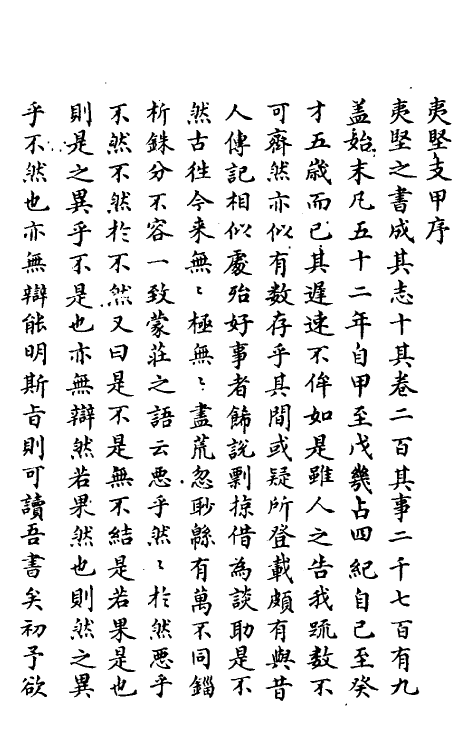 夷堅支甲序
夷堅之書成其志十其卷二百其事二千七百有九
盖始末凡五十二年自甲至戊幾占四紀自己至癸
才五歲而已其遲速不侔如是雖人之告我疏數不
可齊然亦似有數存乎其間或疑所登載頗有與昔
人傳記相似處殆好事者飾説剽掠借為談助是不
然古徃今来無〻極無〻盡荒忽眇緜有萬不同錙
析銖分不容一致蒙莊之語云悪乎然〻扵然悪乎
不然不然扵不然又曰是不是無不結是若果是也
則是之異乎不是也亦無辯然若果然也則然之異
乎不然也亦無辯能明斯㫖則可讀吾書矣初予欲